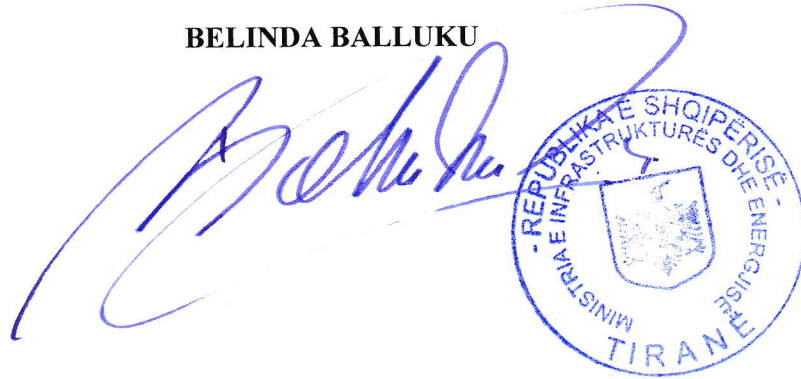 BELINDA BALLUKU
- REPUBLIKA E SHQIPËRISË -
MINISTRIA E INFRASTRUKTURËS DHE ENERGJISË
TIRANË